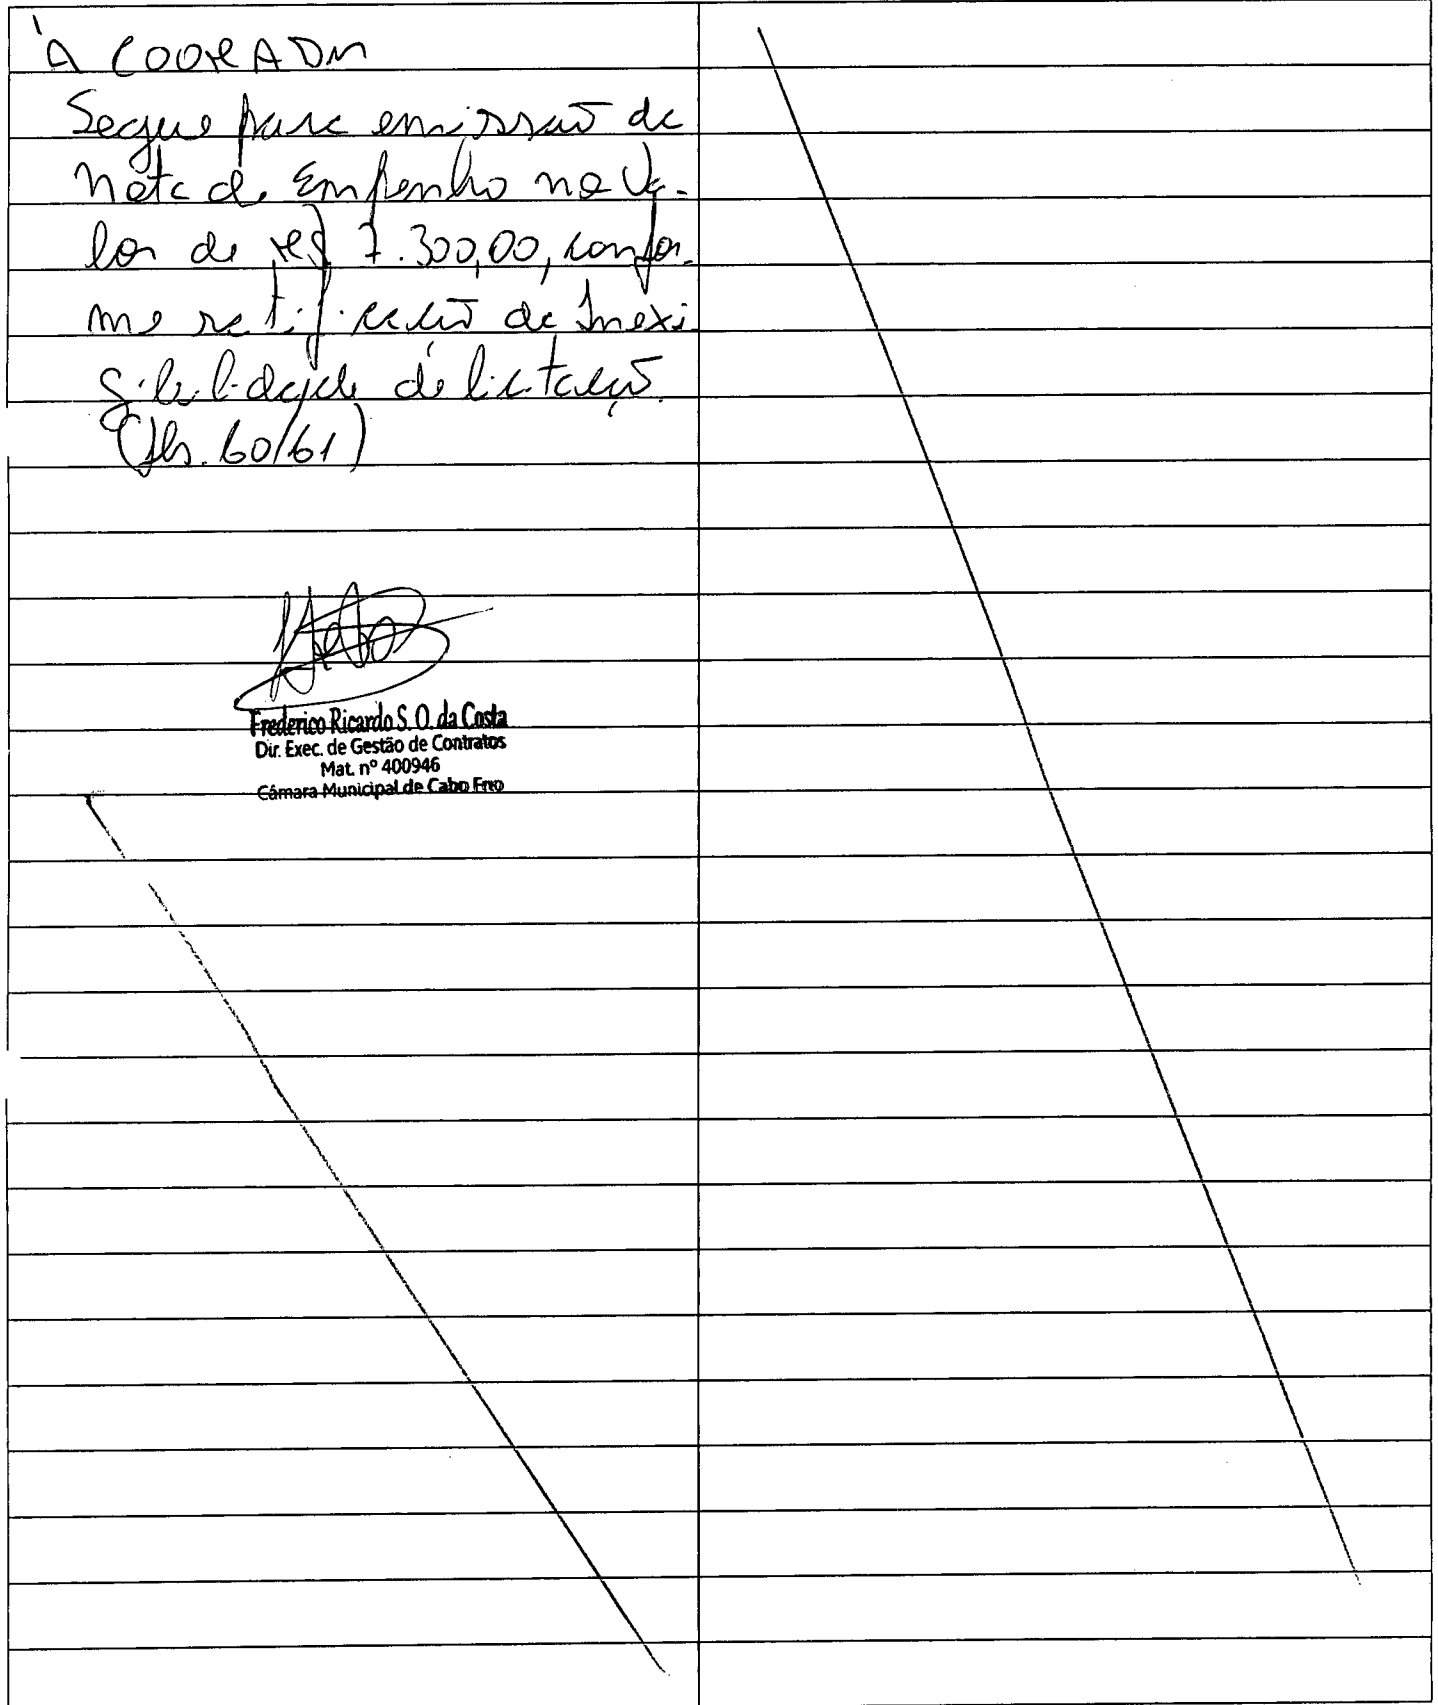 À COORADM
Segue para emissão de
Nota de Empenho no Va-
lor de R$ 7.300,00, confor-
me ratificação de Inexi
gibilidade de licitação.
(fls. 60/61)
Frederico Ricardo S. O. da Costa
Dir. Exec. de Gestão de Contratos
Mat. nº 400946
Câmara Municipal de Cabo Frio